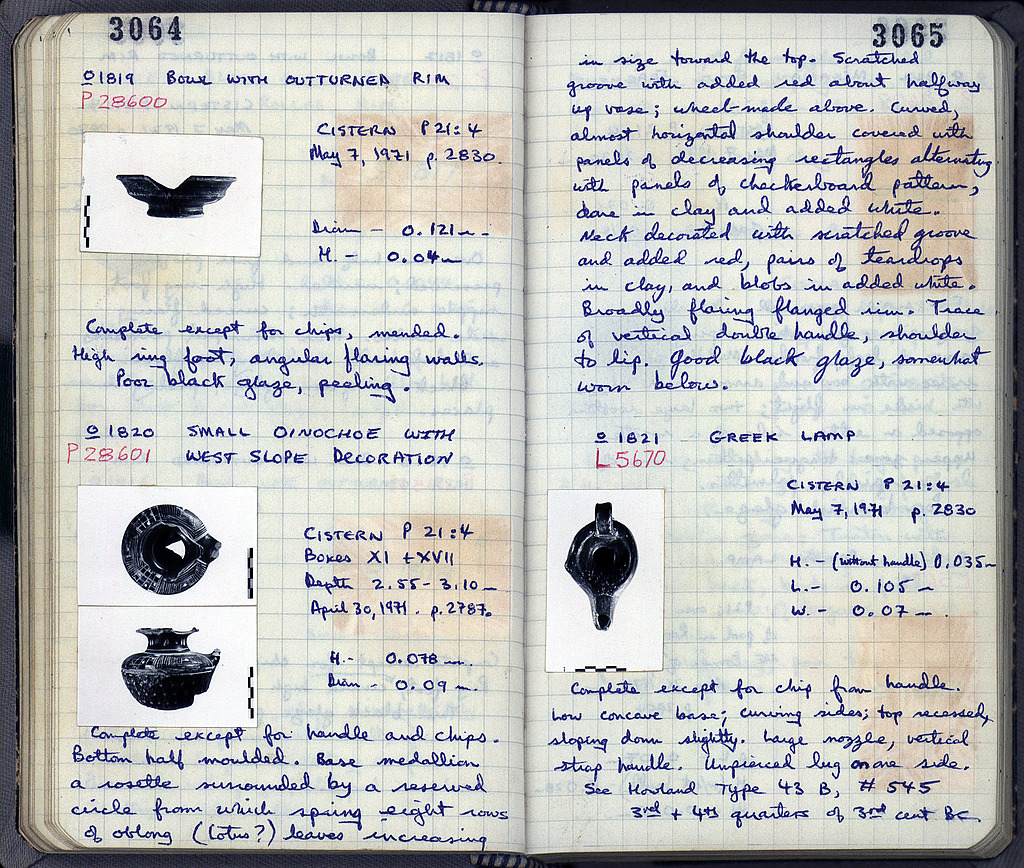 3064
O 1819 BOWL WITH OUTTURNED RIM
P 28600
CISTERN P 21:4
May 7, 1971 p. 2830.
Diam - 0.121 m -
H. - 0.04 m
Complete except for chips, mended.
High ring foot, angular flaring walls.
Poor black glaze, peeling.
O 1820 SMALL OINOCHOE WITH
P 28601 WEST SLOPE DECORATION
CISTERN P 21:4
Boxes XI + XVII
Depth 2.55 - 3.10 m
April 30, 1971. p. 2787.
H. - 0.078 m.
Diam - 0.09 m.
Complete except for handle and chips.
Bottom half moulded. Base medallion
a rosette surrounded by a reserved
circle from which spring eight rows
of oblong (lotus?) leaves increasing
3065
in size toward the top. Scratched
groove with added red about halfway
up vase; wheel-made above. Curved,
almost horizontal shoulder covered with
panels of decreasing rectangles alternating
with panels of checkerboard pattern,
done in clay and added white.
Neck decorated with scratched groove
and added red, pairs of teardrops
in clay, and blobs in added white.
Broadly flaring flanged rim. Trace
of vertical double handle, shoulder
to lip. Good black glaze, somewhat
worn below.
O 1821 GREEK LAMP
L 5670
CISTERN P 21:4
May 7, 1971 p. 2830
H. - (without handle) 0.035 m
L. - 0.105 m
W. - 0.07 m
Complete except for chip from handle.
Low concave base; curving sides; top recessed,
sloping down slightly. Large nozzle, vertical
strap handle. Unpierced lug on one side.
See Howland Type 43 B, # 545
3rd + 4th quarters of 3rd cent BC.